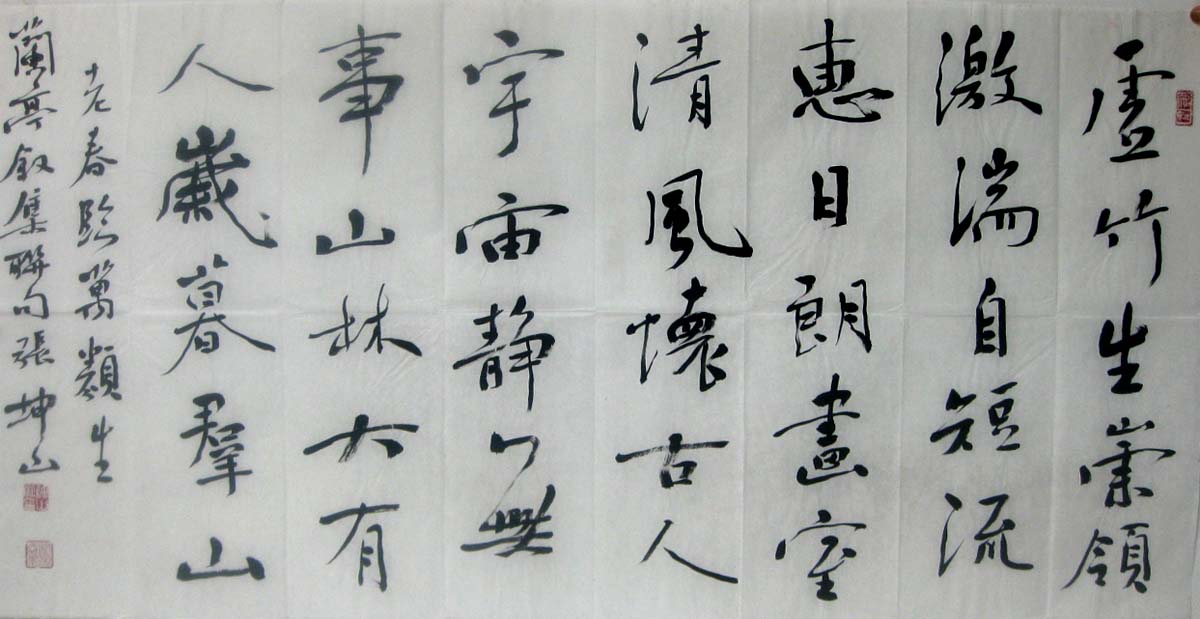 虛竹生崇領
激湍自短流
惠日朗畫室
清風懷古人
宇宙静無
事山林大有
人歲暮羣山
老春臨萬類生
蘭亭叙集聯句張坤山